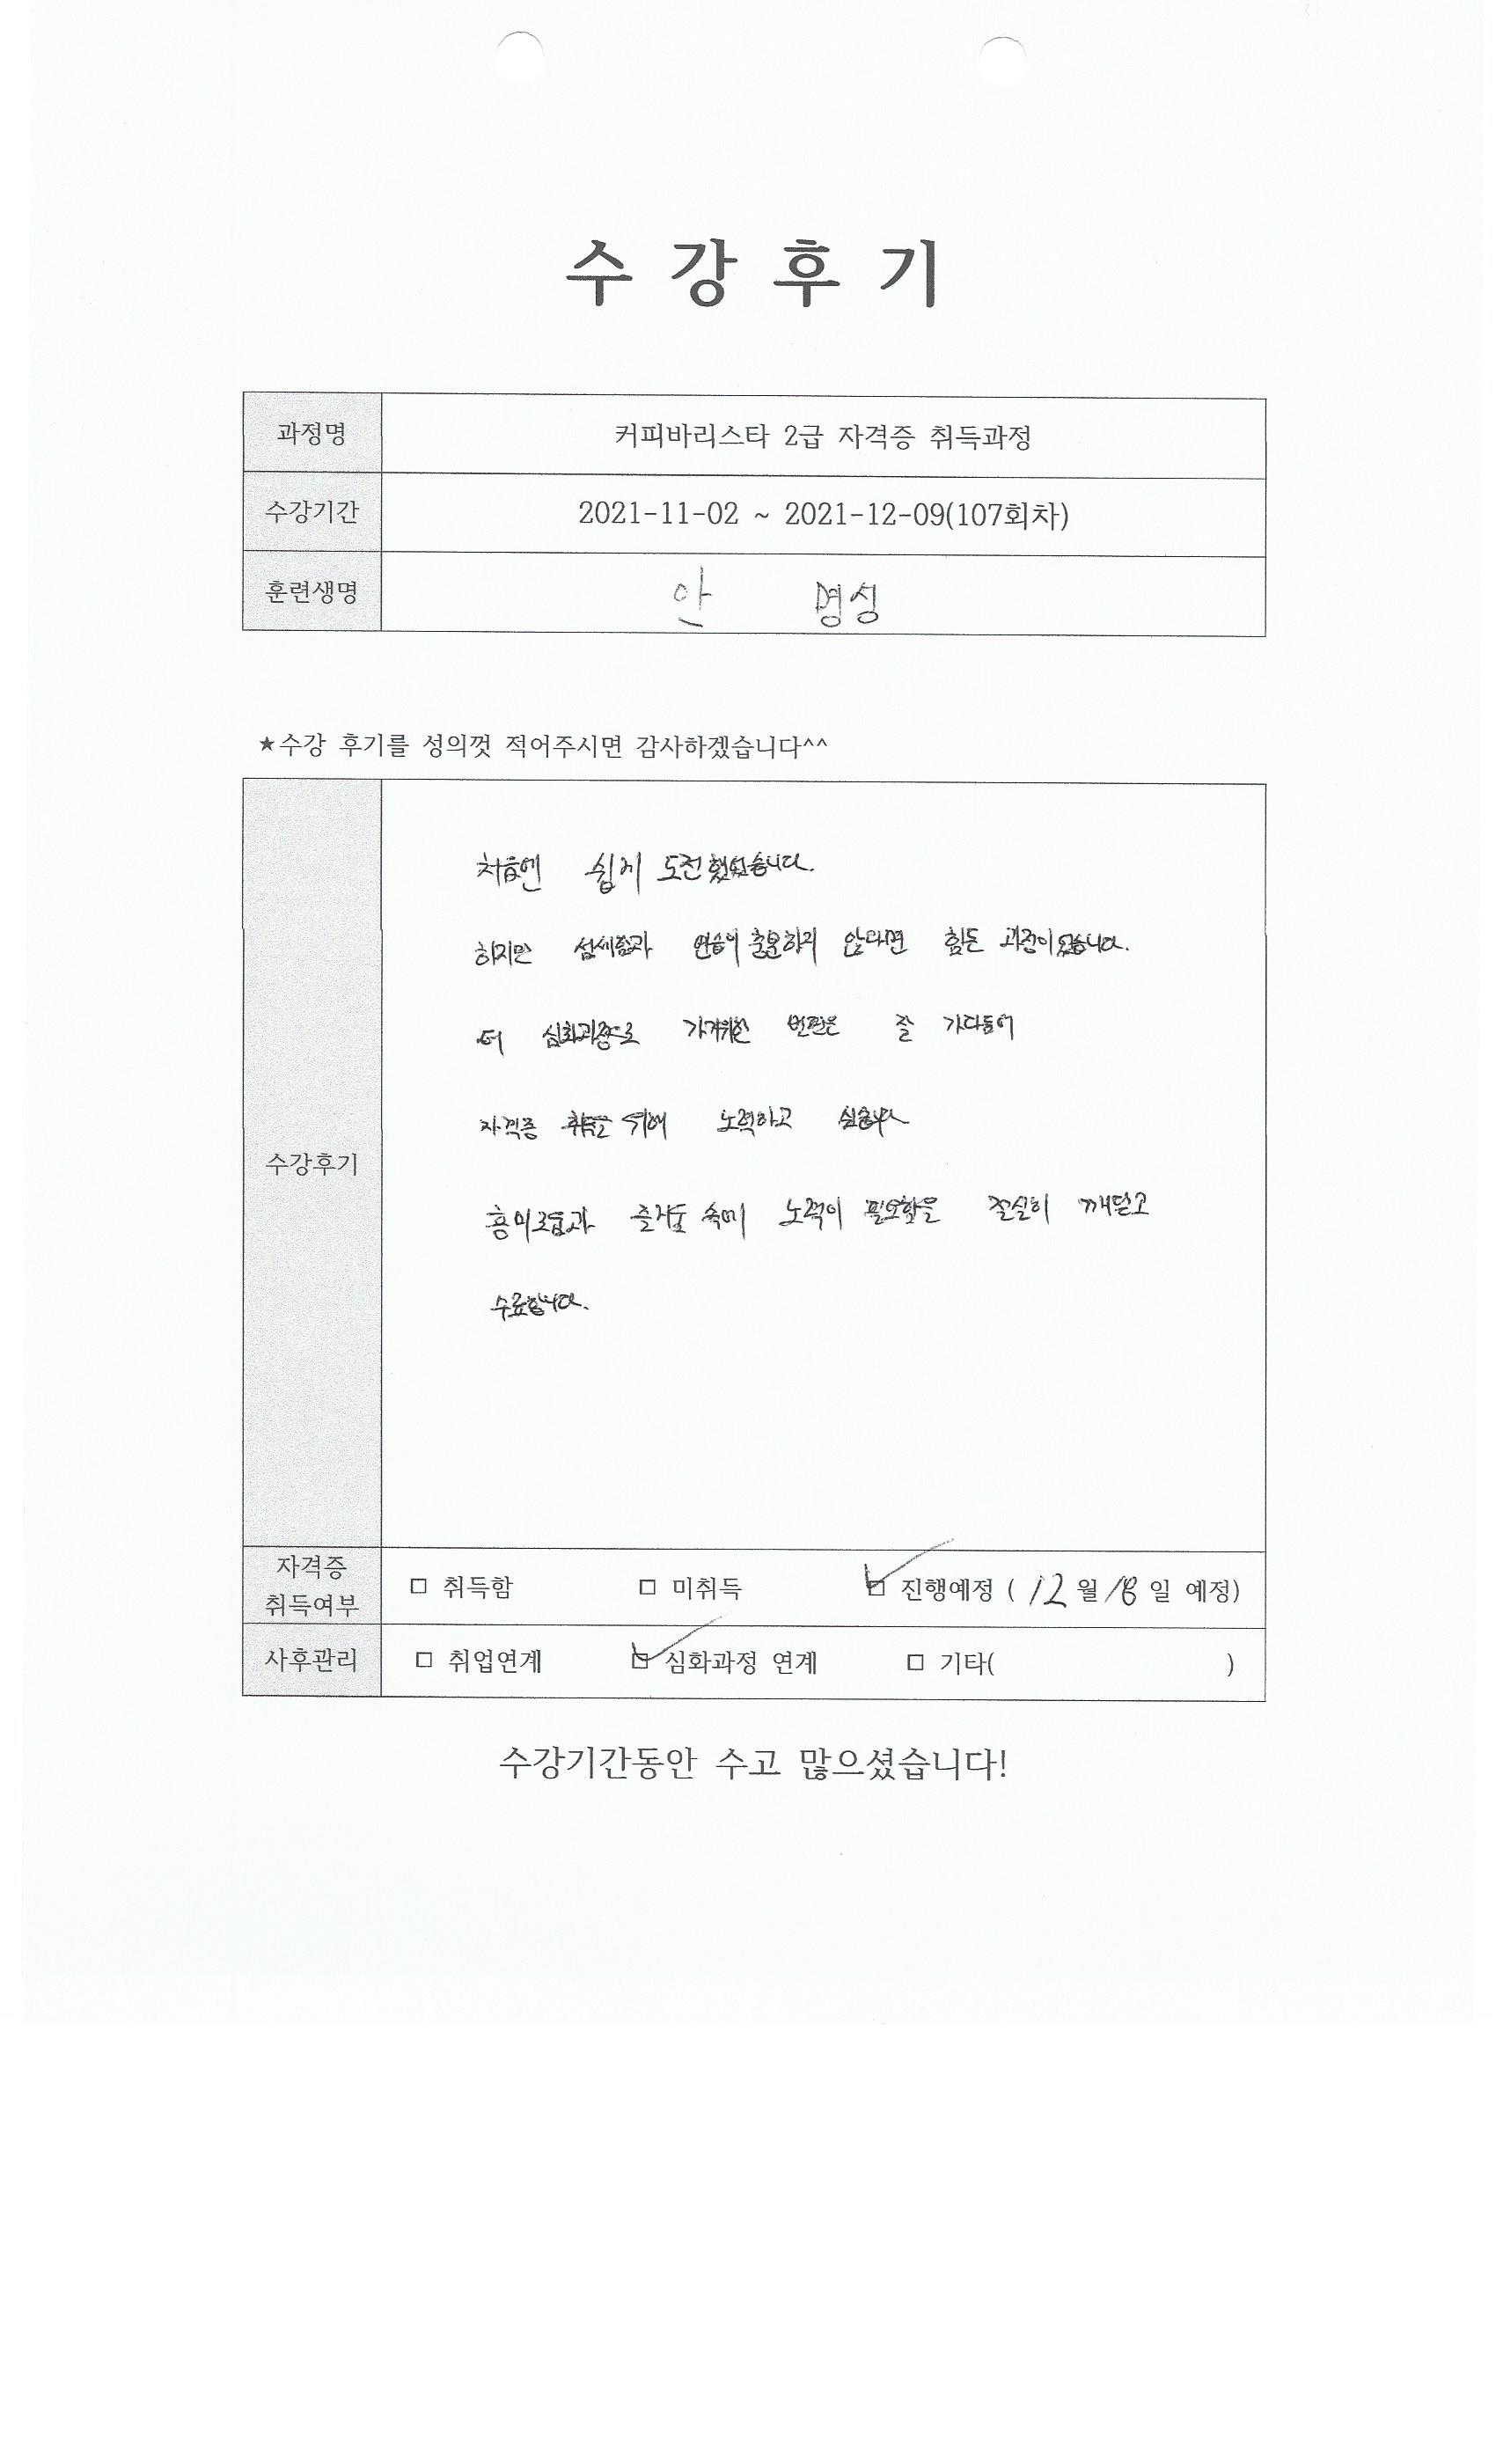 수 강 후 기
과정명 커피바리스타 2급 자격증 취득과정
수강기간 2021-11-02 ~ 2021-12-09(107회차)
훈련생명 안 명성
★수강 후기를 성의껏 적어주시면 감사하겠습니다^^
처음엔 쉽게 도전했었습니다.
하지만 섬세함과 연습이 충분하지 않다면 힘든 과정이었습니다.
더 심화과정으로 가기위한 발판은 잘 가다듬어
자격증 취득을 위해 노력하고 싶습니다
흥미로움과 즐거움 속에 노력이 필요함을 절실히 깨닫고
수료합니다.
수강후기
자격증 취득여부 □ 취득함 □ 미취득 ☑ 진행예정 ( 12 월 18 일 예정)
사후관리 □ 취업연계 ☑ 심화과정 연계 □ 기타( )
수강기간동안 수고 많으셨습니다!